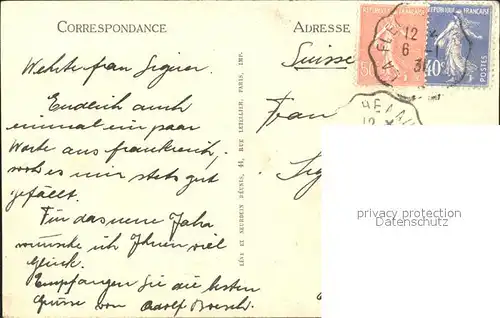 CORRESPONDANCE
ADRESSE
Werte frau Signer
Endlich auch
einmal ein paar
Worte aus frankreich,
wo es mir stets gut
gefällt.
Für das neue Jahr
wünsche ich Ihnen viel
Glück.
Empfangen Sie die besten
Grüsse von Adolf Boesch.
LÉVY ET NEURDEIN RÉUNIS, 44, RUE LETELLIER, PARIS, IMP.
Suisse
Frau
Sig
REPUBLIQUE FRANÇAISE
40c
POSTES
LA FLE
12
6 -1
31
12
privacy protection
watermark